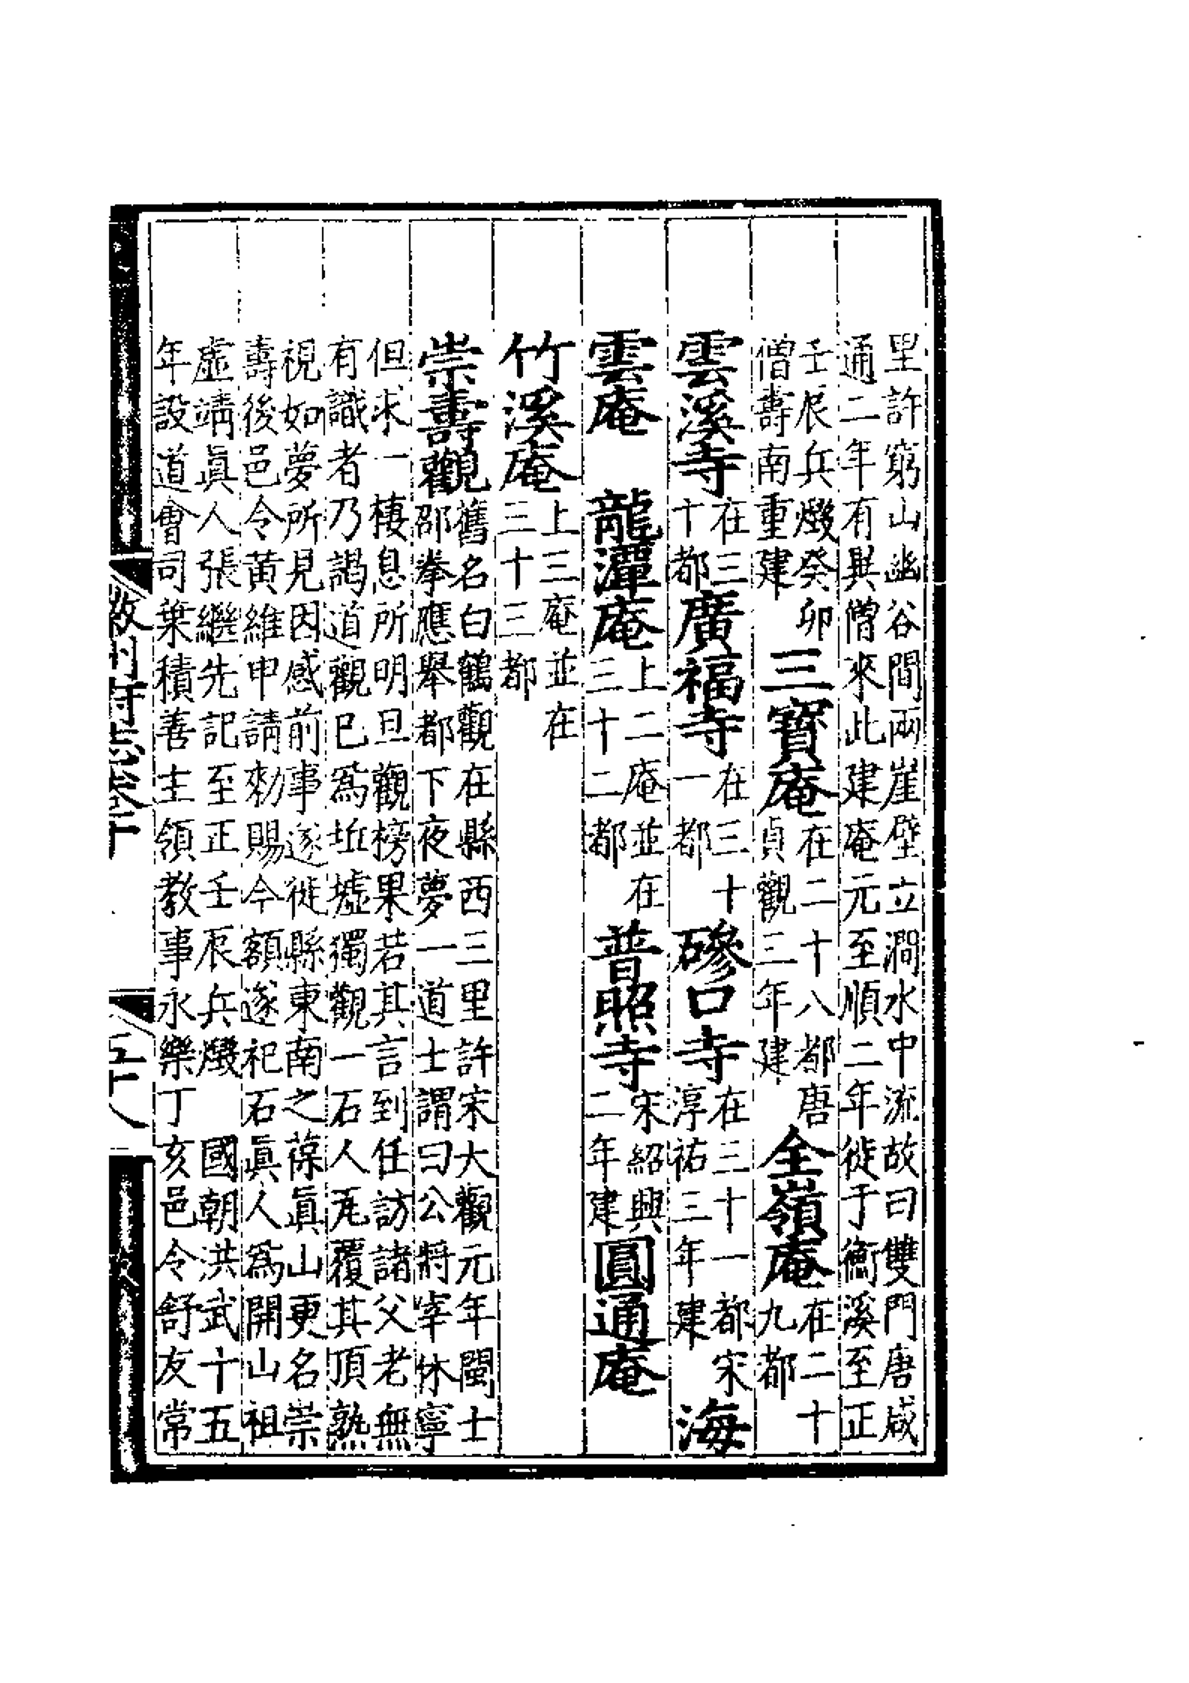 里許窮山幽谷間兩崖壁立澗水中流故曰雙門唐咸
通二年有異僧來此建庵元至順二年徙于衡溪至正
壬辰兵燬癸卯
僧壽南重建
三寶庵
在二十八都唐
貞觀三年建
全嶺庵
在二十
九都
雲溪寺
在三
十都
廣福寺
在三十
一都
磣口寺
在三十一都宋
淳祐三年建
海
雲庵
龍潭庵
上二庵並在
三十二都
普照寺
宋紹興
二年建
圓通庵
竹溪庵
上三庵並在
三十三都
崇壽觀
舊名白鶴觀在縣西三里許宋大觀元年閩士
邵拳應舉都下夜夢一道士謂曰公將宰休寧
但求一棲息所明旦觀榜果若其言到任訪諸父老無
有識者乃謁道觀已爲坵墟獨觀一石人瓦覆其頂熟
視如夢所見因感前事遂徙縣東南之葆眞山更名崇
壽後邑令黃維申請勑賜今額遂祀石眞人爲開山祖
虛靖眞人張繼先記至正壬辰兵燬 國朝洪武十五
年設道會司葉積善主領教事永樂丁亥邑令舒友常
徽州府志卷十
五十八